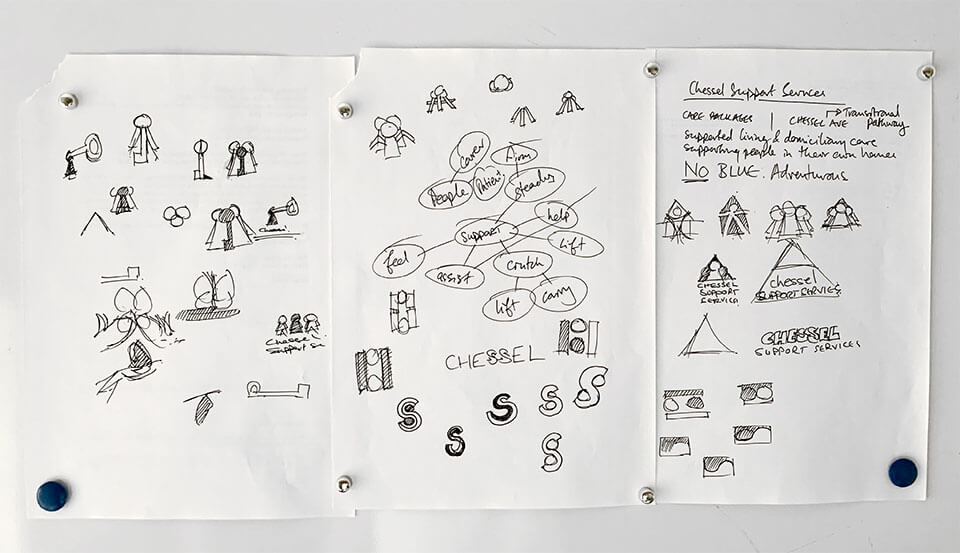 Chessel
Chessel
Support Se
Carer
Firm
People
Patient
steady
help
support
feel
lift
assist
crutch
lift
carry
CHESSEL
S
S
S
S
S
S
Chessel Support Services
CARE PACKAGES
CHESSEL AVE
Transitional
Pathway
supported living & domiciliary care
supporting people in their own homes
NO BLUE. Adventurous
CHESSEL
SUPPORT
SERVICES
chessel
SUPPORT SERVICES
CHESSEL
SUPPORT SERVICES